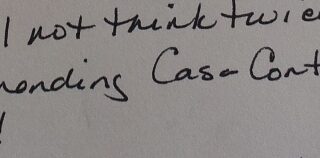 l not think twice
mending Casa Cont
!